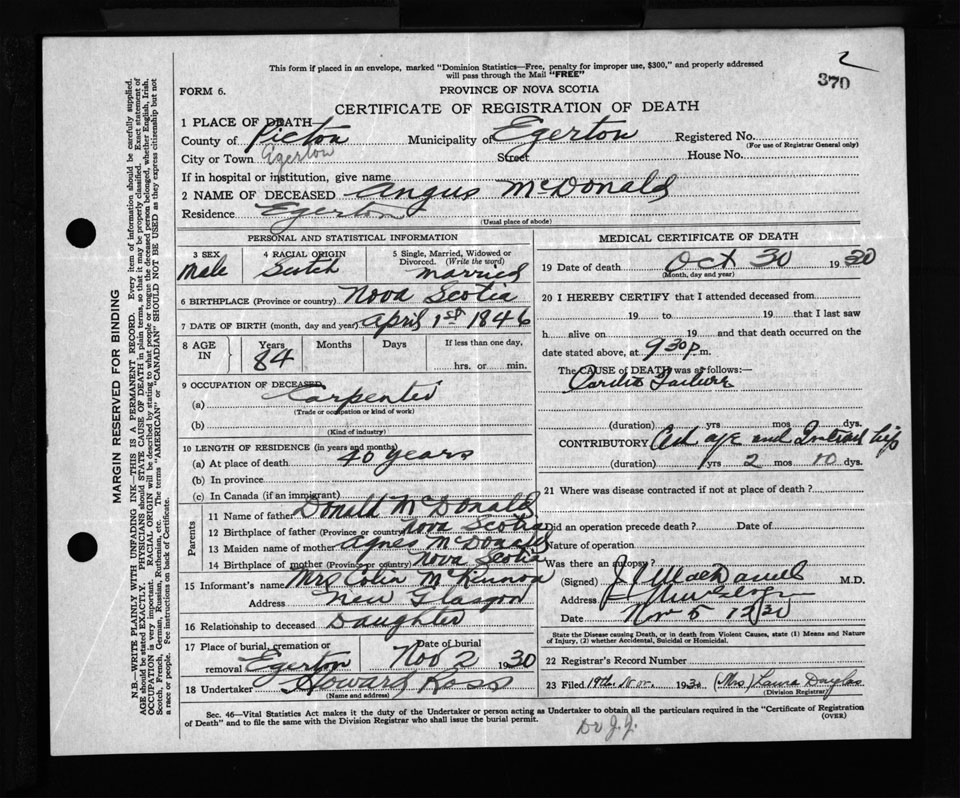 2
370
This form if placed in an envelope, marked "Dominion Statistics—Free, penalty for improper use, $300," and properly addressed
will pass through the Mail "FREE"
FORM 6.
PROVINCE OF NOVA SCOTIA
CERTIFICATE OF REGISTRATION OF DEATH
1 PLACE OF DEATH—
County of Pictou Municipality of Egerton Registered No.
(For use of Registrar General only)
City or Town Egerton Street House No.
If in hospital or institution, give name
2 NAME OF DECEASED Angus McDonald
Residence Egerton
(Usual place of abode)
PERSONAL AND STATISTICAL INFORMATION
3 SEX Male
4 RACIAL ORIGIN Scotch
5 Single, Married, Widowed or Divorced. (Write the word) married
6 BIRTHPLACE (Province or country) Nova Scotia
7 DATE OF BIRTH (month, day and year) April 1st 1846
8 AGE IN Years 84 Months Days If less than one day, hrs. or min.
9 OCCUPATION OF DECEASED
(a) Carpenter
(Trade or occupation or kind of work)
(b)
(Kind of industry)
10 LENGTH OF RESIDENCE (in years and months)
(a) At place of death 40 years
(b) In province
(c) In Canada (if an immigrant)
Parents
11 Name of father Donald McDonald
12 Birthplace of father (Province or country) Nova Scotia
13 Maiden name of mother Agnes McDonald
14 Birthplace of mother (Province or country) Nova Scotia
15 Informant's name Mrs Colin McKinnon
Address New Glasgow
16 Relationship to deceased Daughter
17 Place of burial, cremation or removal Egerton Date of burial Nov 2 1930
18 Undertaker Howard Ross
(Name and address)
MEDICAL CERTIFICATE OF DEATH
19 Date of death Oct 30 1930
(Month, day and year)
20 I HEREBY CERTIFY that I attended deceased from
19 to 19 that I last saw
h alive on 19 and that death occurred on
date stated above, at 9 30 p.m.
The CAUSE of DEATH was as follows:—
Cardio Failure
(duration) yrs mos dys.
CONTRIBUTORY Old age and hip
(duration) yrs 2 mos 10 dys.
21 Where was disease contracted if not at place of death?
Did an operation precede death? Date of
Nature of operation
Was there an autopsy?
(Signed) M.D.
Address
Date Nov 5 1930
State the Disease causing Death, or in death from Violent Causes, state (1) Means and Nature
of Injury, (2) whether Accidental, Suicidal or Homicidal.
22 Registrar's Record Number
23 Filed 19th Nov. 1930 (Mrs) Laura Douglas
(Division Registrar)
Sec. 46—Vital Statistics Act makes it the duty of the Undertaker or person acting as Undertaker to obtain all the particulars required in the "Certificate of Registration
of Death" and to file the same with the Division Registrar who shall issue the burial permit. (OVER)
Dr J. J.
MARGIN RESERVED FOR BINDING
N.B.—WRITE PLAINLY WITH UNFADING INK—THIS IS A PERMANENT RECORD. Every item of information should be carefully supplied.
AGE should be stated EXACTLY. PHYSICIANS should STATE CAUSE OF DEATH in plain terms, so that it may be properly classified. Exact statement of
OCCUPATION is very important. RACIAL ORIGIN will be described by stating to what people or tongue the deceased person belonged, whether English, Irish,
Scotch, French, German, Russian, Ruthenian, etc. The terms "AMERICAN" or "CANADIAN" SHOULD NOT BE USED as they express citizenship but not
a race or people. See instructions on back of Certificate.